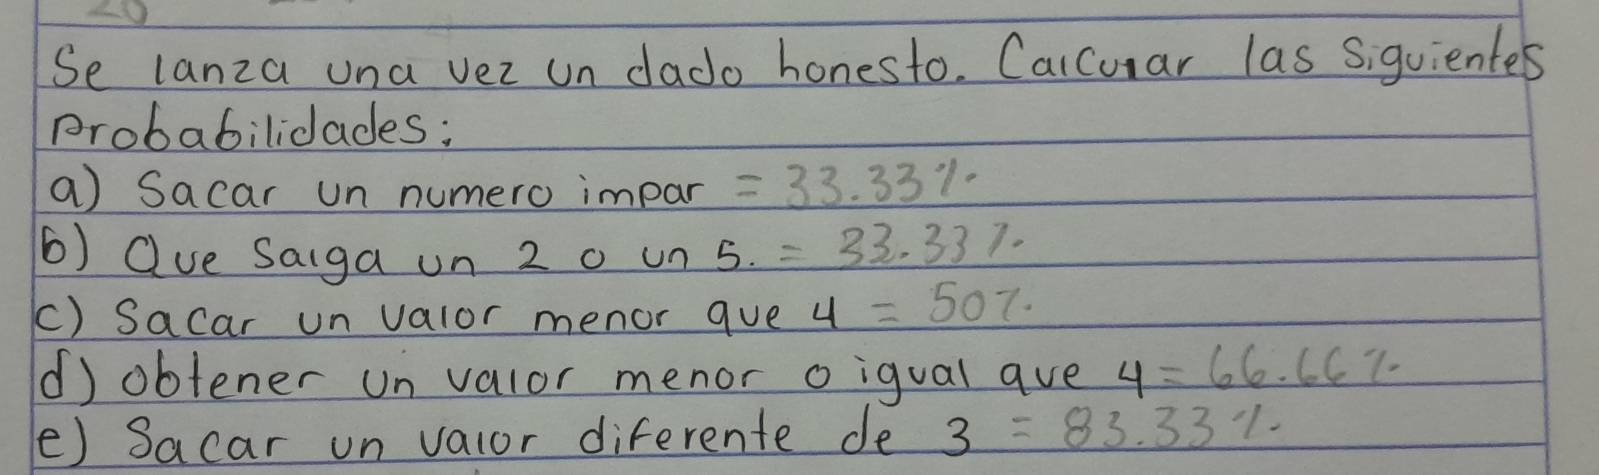 20
Se lanza una vez un dado honesto. Calcular las siguientes
Probabilidades:
a) Sacar un numero impar = 33.33%
b) Que salga un 2 o un 5. = 33.33%
c) Sacar un valor menor que 4 = 50%
d) Obtener un valor menor o igual que 4 = 66.66%
e) Sacar un valor diferente de 3 = 83.33%